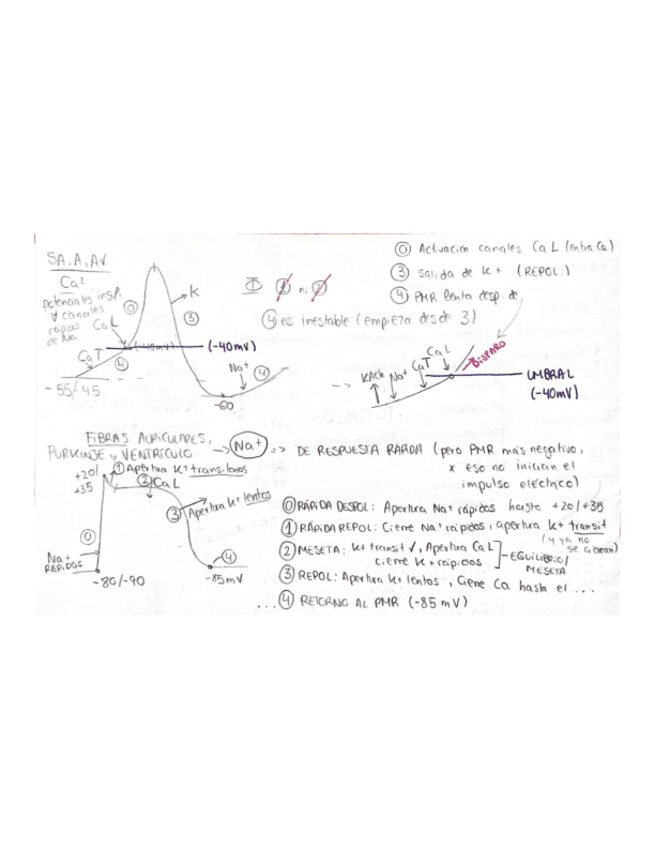 SA, A, AV
Ca²
potenciales insp.
∀ canales
rápidos
de Na
CaL
CaT
④
⓪
K
③
(-40mV)
(-40mV)
- 55/-45
-60
Na+
④
Φ ① ni ②
④ es inestable (empieza desde 3)
⓪ Activación canales CaL (entra Ca)
③ salida de K+ (REPOL.)
④ PMR lenta desp. de
KACh Na+ CaT CaL
DISPARO
UMBRAL
(-40mV)
FIBRAS AURICULARES,
PURKINJE y VENTRÍCULO → Na+ => DE RESPUESTA RÁPIDA (pero PMR más negativo,
x eso no inician el
impulso eléctrico)
+20/
+35
① Apertura K+ transitorios
② CaL
③ Apertura K+ lentos
⓪
Na+
RÁPIDOS
-80/-90
④
-85mV
⓪ RÁPIDA DESPOL: Apertura Na+ rápidos hasta +20/+35
① RÁPIDA REPOL: Cierre Na+ rápidos, apertura K+ transit
(y ya no
se cierran)
② MESETA: K+ transit ✓, Apertura CaL
cierre K+ rápidos
EQUILIBRIO/
MESETA
③ REPOL: Apertura K+ lentos, Cierre Ca hasta el ...
... ④ RETORNO AL PMR (-85 mV)